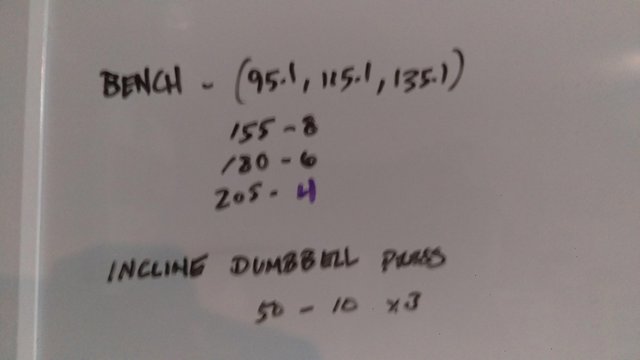 BENCH - (95.1, 115.1, 135.1)
155 - 8
180 - 6
205 - 4
INCLINE DUMBBELL PRESS
50 - 10 x3